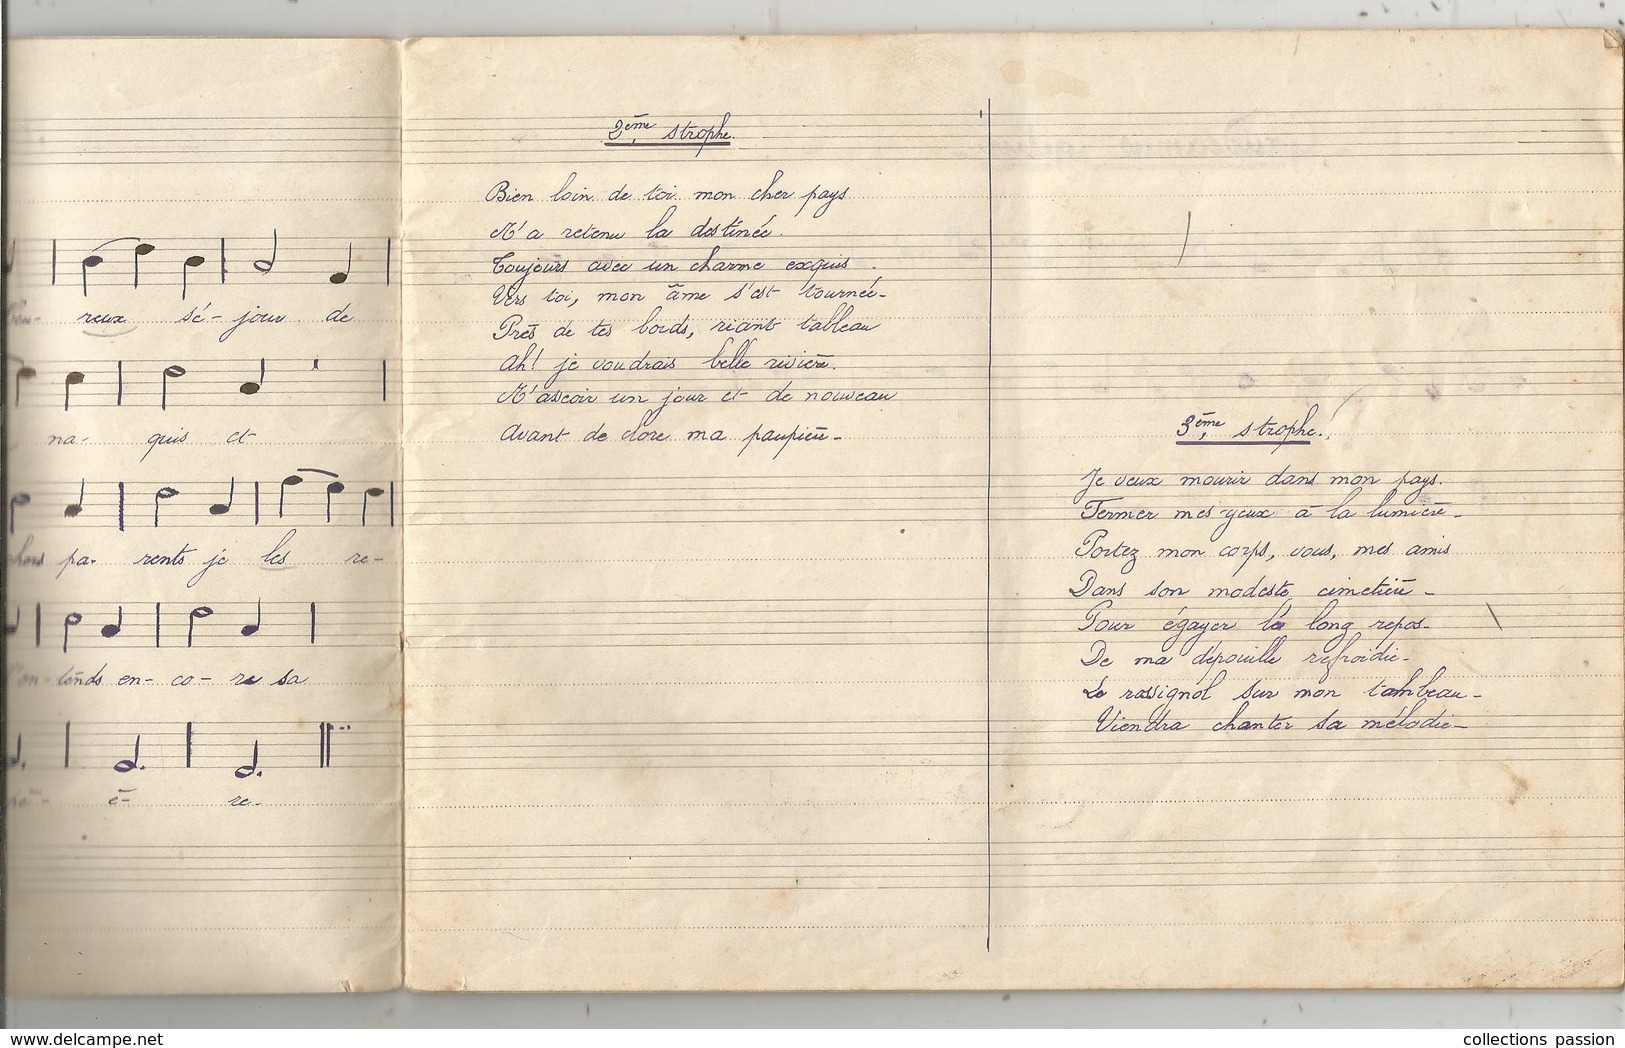 reux sé- jour de
na- quis et
pa- rents je les re-
tends en- co- re sa
é- re-
2ème strophe.
Bien loin de toi mon cher pays
M'a retenu la destinée.
Toujours avec un charme exquis.
Vers toi, mon âme s'est tournée-
Près de tes bords, riant tableau
Ah! je voudrais belle rivière.
M'asseoir un jour et de nouveau
Avant de clore ma paupière-
3ème strophe.
Je veux mourir dans mon pays.
Fermer mes yeux à la lumière-
Portez mon corps, vous, mes amis
Dans son modeste cimetière-
Pour égayer le long repos-
De ma dépouille refroidie-
Le rossignol sur mon tombeau-
Viendra chanter sa mélodie-
delcampe.net
collections passion